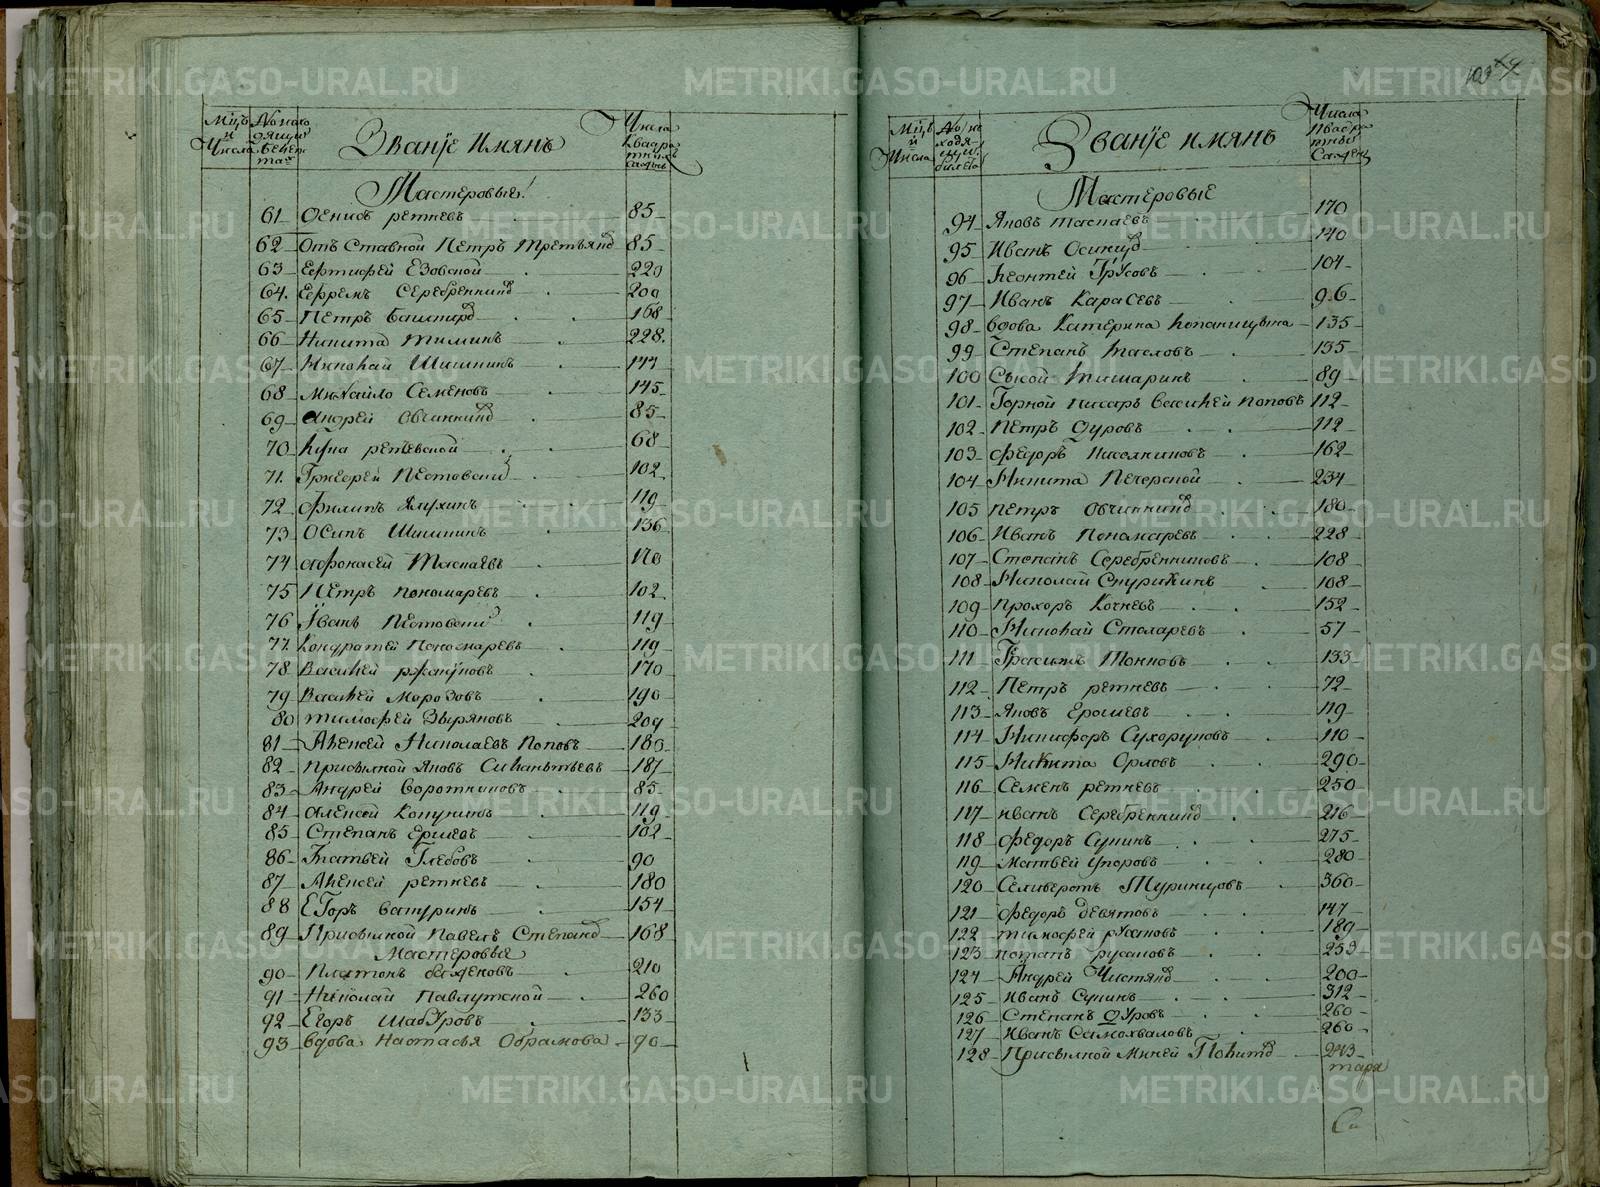 Мцъ и Числа
№ находящи биле та
Званїе имянъ
Числа квадратныхъ саженъ
Мастеровые
61 Денисъ ретневъ 85
62 Отъставной Петръ Третьяков 85
63 Евтифей Езовской 220
64 Ефремъ Серебренников 200
65 Петръ Башкиров 168
66 Никита тиминъ 228
67 Николай Шишкинъ 144
68 михайло Семеновъ 145
69 андрей Овчинников 85
70 Кузма ретневской 68
71 Григорей Пестовский 102
72 Филипъ 119
73 Осипъ Шишкинъ 136
74 афонасей Маслаевъ 170
75 Петръ пономаревъ 102
76 Їванъ Пестовский 119
77 Кондратей Пономаревъ 119
78 Василей 170
79 Василей Морозовъ 190
80 тимофей Зыряновъ 209
81 Алексей Николаевъ Поповъ 180
82 Присыльной Яковъ Силантьевъ 187
83 Андрей воротниковъ 85
84 алексей Копунинъ 119
85 Степанъ Ершевъ 102
86 Матвей Глебовъ 90
87 Алексей ретневъ 180
88 Егоръ батуринъ 154
89 Присыльной Павелъ Степанов 168
Мастеровые
90 Платонъ баженовъ 210
91 Николай Павлутской 260
92 Егоръ шабуровъ 133
93 вдова Настасья Обрамова 90
103
Мцъ и Числа
№ находящи билета
Званїе имянъ
Числа квадратныхъ Сажень
Мастеровые
94 Яковъ Маслаевъ 170
95 Иванъ Осинцов 140
96 Леонтей Трусовъ 104
97 Иванъ Карасевъ 96
98 вдова Катерина 135
99 Степанъ Масловъ 135
100 Сысой Тишаринъ 89
101 Горной писарь Василей Поповъ 112
102 Петръ Дуровъ 112
103 Федоръ 162
104 Никита Печерской 234
105 Петръ Овчинников 180
106 Иванъ Пономаревъ 228
107 Степанъ Серебренниковъ 108
108 Николай Стурихинъ 108
109 Прохоръ Кочневъ 152
110 Николай Столаревъ 57
111 133
112 Петръ ретневъ 72
113 Яковъ Ершевъ 119
114 Никифоръ Сухоруковъ 110
115 Никита Орловъ 290
116 Семенъ ретневъ 250
117 иванъ Серебренников 216
118 Федоръ Сунинъ 275
119 Матвей упоровъ 280
120 Селиверстъ Туринцовъ 360
121 Федоръ девятовъ 147
122 тимофей русановъ 189
123 потапъ русановъ 253
124 Андрей Чистяков 200
125 иванъ Сунинъ 312
126 Степанъ Дуровъ 260
127 иванъ Самохваловъ 260
128 Присыльной Михей 243